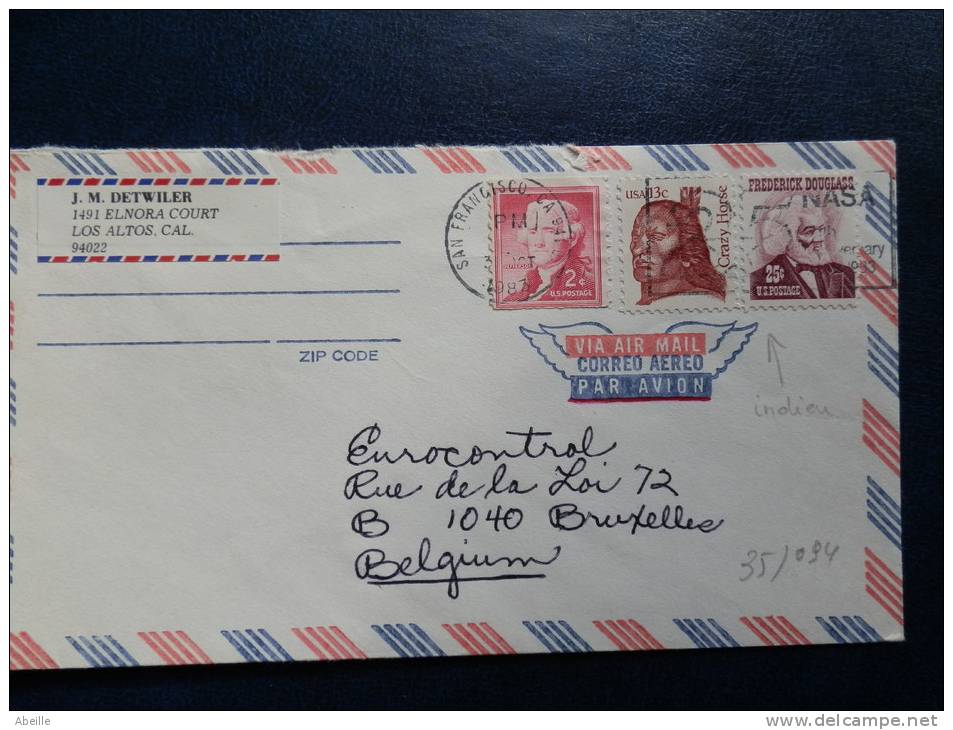 J. M. DETWILER
1491 ELNORA COURT
LOS ALTOS, CAL.
94022
ZIP CODE
SAN FRANCISCO, CA 941
PM
OCT
1983
JEFFERSON
2¢
U.S. POSTAGE
USA 13c
Crazy Horse
FREDERICK DOUGLASS
25¢
U.S. POSTAGE
NASA
1983
VIA AIR MAIL
CORREO AEREO
PAR AVION
indien
Eurocontrol
Rue de la Loi 72
B 1040 Bruxelles
Belgium
35/094
Abeille
http://www.delcampe.net